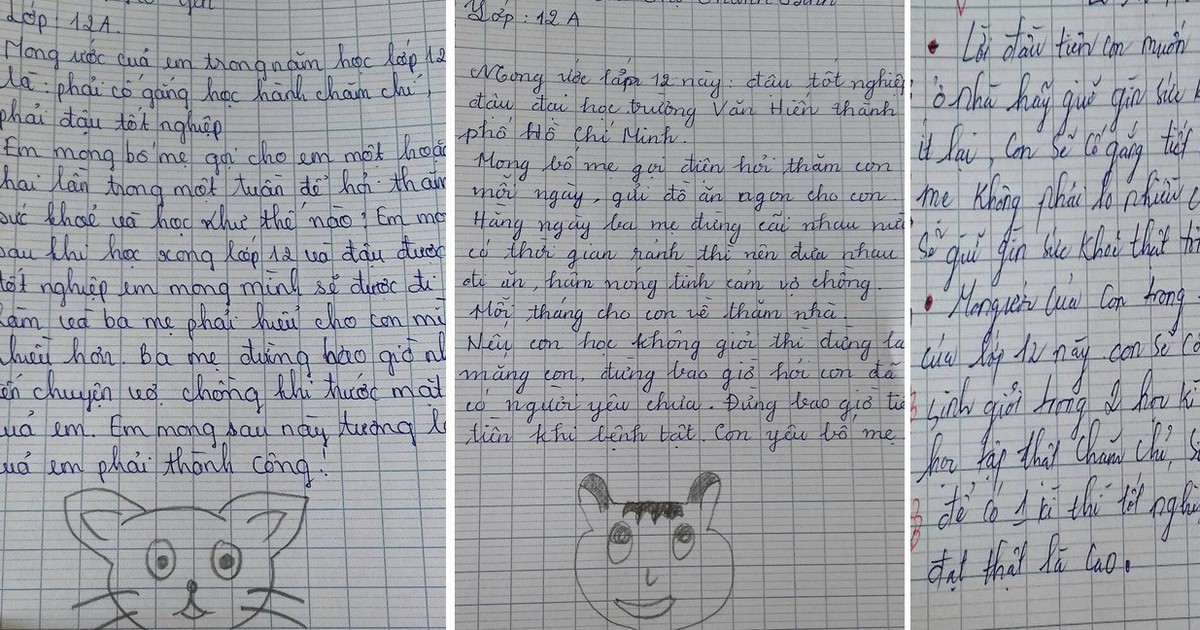 Lớp 12A.
Mong ước của em trong năm học lớp 12
là: phải cố gắng học hành chăm chỉ,
phải đậu tốt nghiệp
Em mong bố mẹ gọi cho em một hoặc
hai lần trong một tuần để hỏi thăm
sức khoẻ và học như thế nào! Em mo
sau khi học xong lớp 12 và đậu được
tốt nghiệp em mong mình sẽ được đi
làm và ba mẹ phải hiểu cho con mì
nhiều hơn. Ba mẹ đừng bao giờ n
ến chuyện vợ chồng khi trước mặt
uả em. Em mong sau này tương l
uả em phải thành công!
Lớp: 12A
Mong ước lớp 12 này: đậu tốt nghiệp
đậu đại học trường Văn Hiến thành
phố Hồ Chí Minh.
Mong bố mẹ gọi điện hỏi thăm con
mỗi ngày, gửi đồ ăn ngon cho con.
Hàng ngày ba mẹ đừng cãi nhau nữa
có thời gian rảnh thì nên đưa nhau
đi ăn, hâm nóng tình cảm vợ chồng.
Mỗi tháng cho con về thăm nhà.
Nếu con học không giỏi thì đừng la
mắng con, đừng bao giờ hỏi con đã
có người yêu chưa. Đừng bao giờ ti
tiền khi bệnh tật. Con yêu bố mẹ
• Lời đầu tiên con muốn
ở nhà hãy giữ gìn sức k
ít lại, con sẽ cố gắng tiết
mẹ không phải lo nhiều c
Sẽ giữ gìn sức khoẻ thật tố
• Mong ước của con trong
của lớp 12 này con sẽ cố
sinh giỏi trong 2 học kì
học tập thật chăm chỉ, s
để có 1 kì thi tốt nghi
đạt thật là cao.